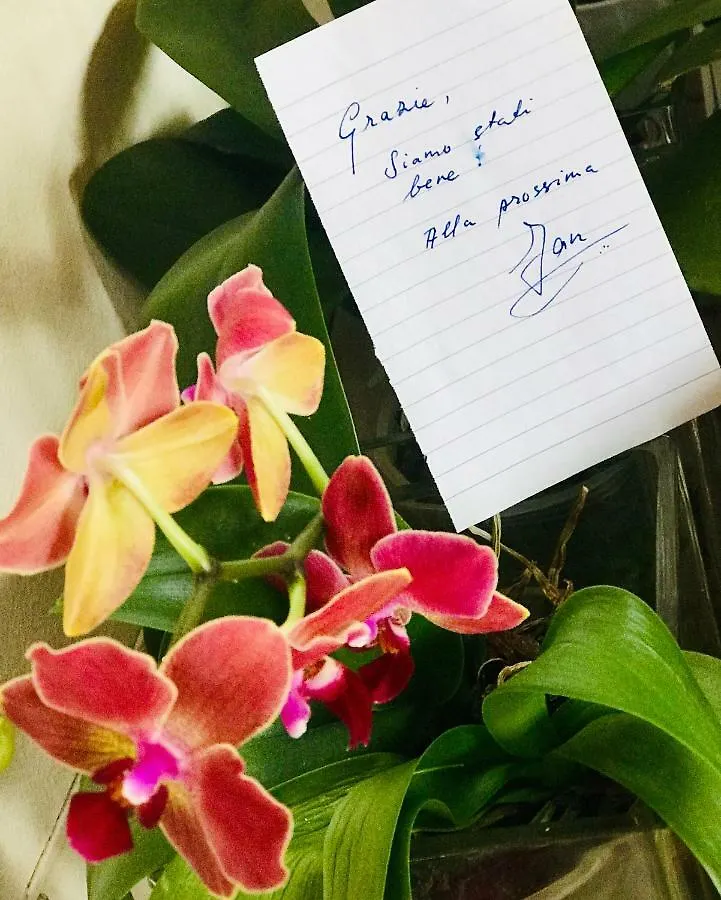 Grazie,
Siamo stati
bene!
Alla prossima
Jan